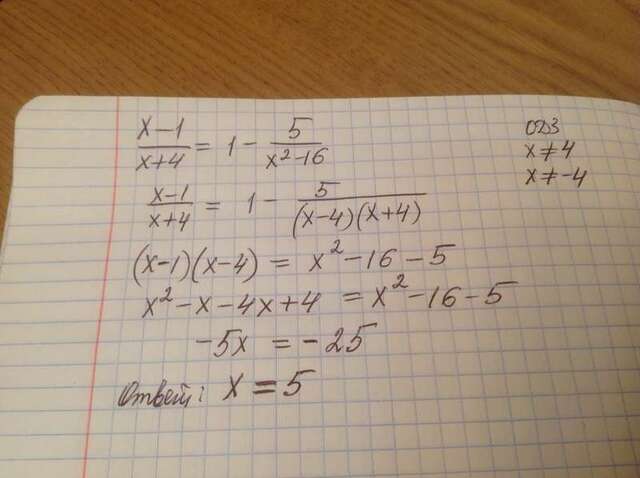 x-1/x+4 = 1 - 5/x²-16
ОДЗ
x≠4
x≠-4
x-1/x+4 = 1 - 5/(x-4)(x+4)
(x-1)(x-4) = x²-16-5
x²-x-4x+4 = x²-16-5
-5x = -25
Ответ: x=5